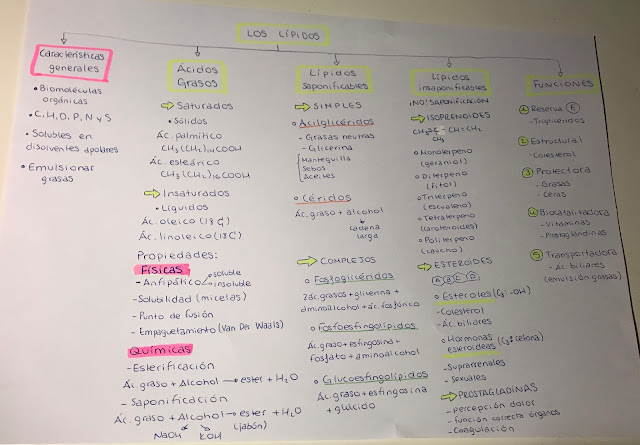 LOS LÍPIDOS
Características
generales
• Biomoléculas
orgánicas
• C, H, O, P, N y S
• Solubles en
disolventes apolares
• Emulsionar
grasas
Ácidos
Grasos
⇒ Saturados
• Sólidos
Ác. palmítico
CH₃(CH₂)₁₄COOH
Ác. esteárico
CH₃(CH₂)₁₆COOH
⇒ Insaturados
• Líquidos
Ác. oleico (18 C)
Ác. linoleico (18 C)
Propiedades:
Físicas
- Anfipático soluble
insoluble
- Solubilidad (micelas)
- Punto de fusión
- Empaquetamiento (Van Der Waals)
Químicas
- Esterificación
Ác. graso + Alcohol → ester + H₂O
- Saponificación
Ác. graso + Alcohol → ester + H₂O
(jabón)
NaOH KOH
Lípidos
saponificables
⇒ SIMPLES
° Acilglicéridos
- Grasas neutras
- Glicerina
Mantequilla
Sebos
Aceites
° Céridos
Ác. graso + alcohol
cadena
larga
⇒ COMPLEJOS
° Fosfoglicéridos
2 ác. grasos + glicerina +
aminoalcohol + ác. fosfórico
° Fosfoesfingolípidos
Ác. graso + esfingosina +
fosfato + aminoalcohol
° Glucoesfingolípidos
Ác. graso + esfingosina
+ glúcido
Lípidos
insaponificables
¡NO! SAPONIFICACIÓN
⇒ ISOPRENOIDES
CH₂=C - CH=CH₂
CH₃
° Monoterpeno
(geraniol)
° Diterpeno
(fitol)
° Triterpeno
(escualeno)
° Tetraterpeno
(carotenoides)
° Politerpeno
(caucho)
⇒ ESTEROIDES
A B C D
° Esteroles (C₃: -OH)
- Colesterol
- Ác. biliares
° Hormonas
esteroideas (C₃: cetona)
- Suprarrenales
- Sexuales
⇒ PROSTAGLADINAS
- percepción dolor
- función correcta órganos
- Coagulación
FUNCIONES
1 Reserva E
- Triglicéridos
2 Estructural
- Colesterol
3 Protectora
- Grasas
- Ceras
4 Biocatalitadora
- Vitaminas
- Prostaglandinas
5 Transportadora
- Ác. biliares
(emulsión grasas)